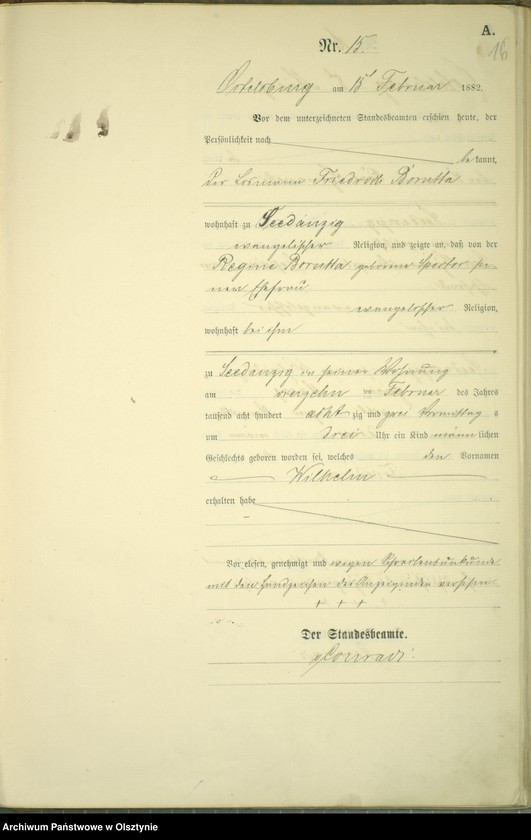 A.
16
Nr. 15.
Ortelsburg am 15 Februar 1882.
Vor dem unterzeichneten Standesbeamten erschien heute, der
Persönlichkeit nach
be kannt,
der Losmann Friedrich Borutta
wohnhaft zu Seedanzig
evangelischer Religion, und zeigte an, daß von der
Regine Borutta geborene sei-
ner Ehefrau
evangelischer Religion,
wohnhaft bei ihm
zu Seedanzig in seiner Wohnung
am vierzehn ten Februar des Jahres
tausend acht hundert acht zig und zwei Vormittag s
um drei Uhr ein Kind männ lichen
Geschlechts geboren worden sei, welches den Vornamen
Wilhelm
erhalten habe
Vorgelesen, genehmigt und wegen Schreibensunkunde
mit den Handzeichen des Anzeigenden versehen
+ + +
Der Standesbeamte.
Conrad
Archiwum Państwowe w Olsztynie